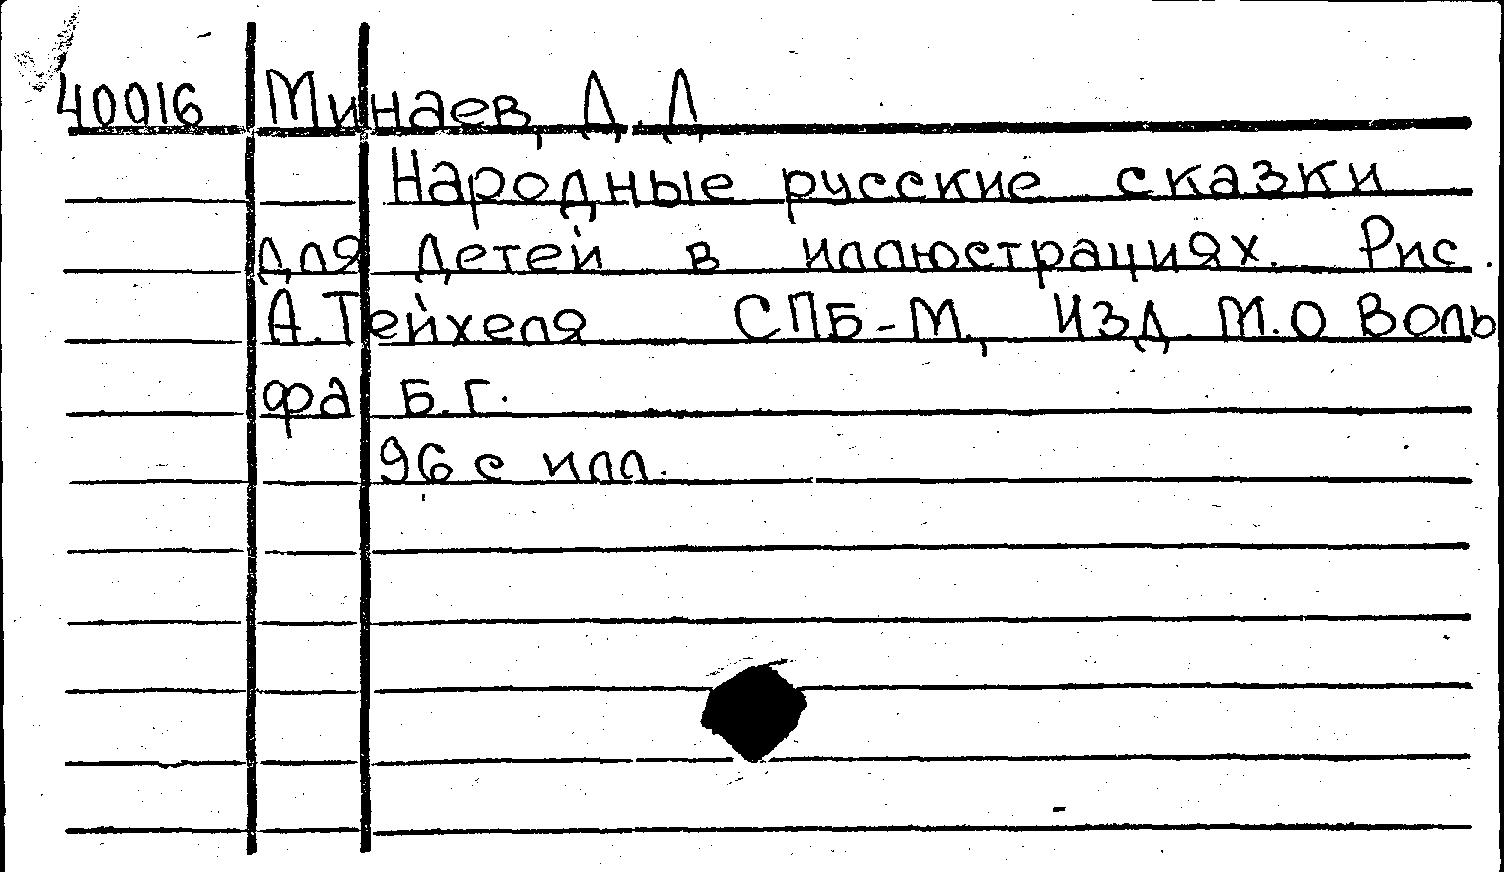 40016 Минаев, Д.Д
Народные русские сказки
для детей в иллюстрациях. Рис.
А.Тейхеля СПБ-М, Изд. М.О Воль
фа Б.г.
96 с илл.